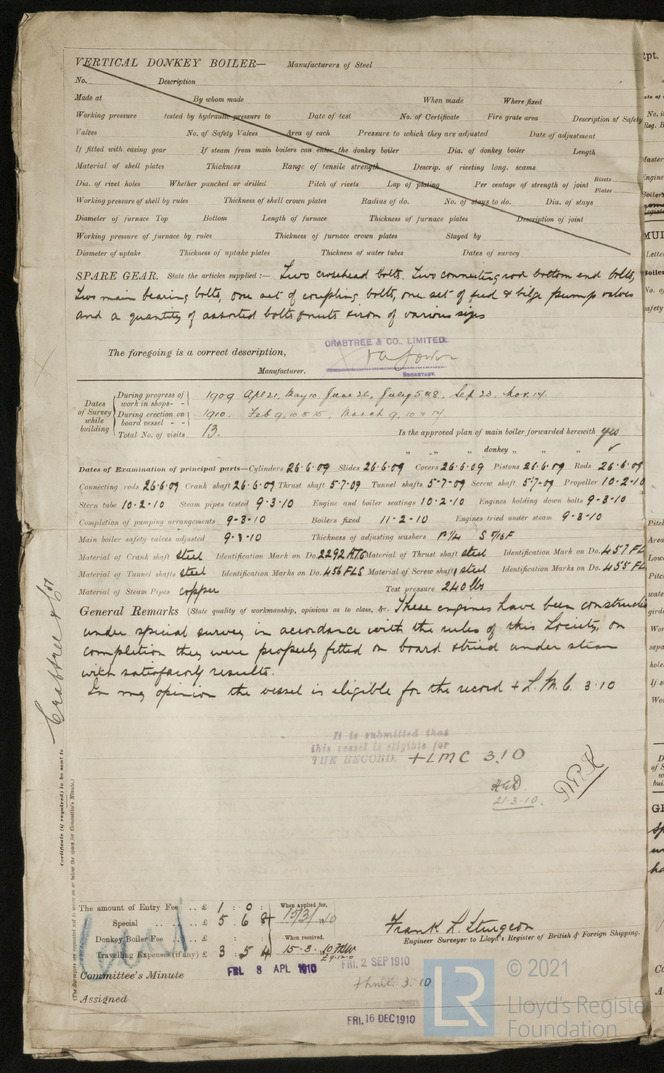 VERTICAL DONKEY BOILER— Manufacturers of Steel
No. Description
Made at By whom made When made Where fixed
Working pressure tested by hydraulic pressure to Date of test No. of Certificate Fire grate area Description of Safety
Valves No. of Safety Valves Area of each Pressure to which they are adjusted Date of adjustment
If fitted with easing gear If steam from main boilers can enter the donkey boiler Dia. of donkey boiler Length
Material of shell plates Thickness Range of tensile strength Descrip. of riveting long. seams
Dia. of rivet holes Whether punched or drilled Pitch of rivets Lap of plating Per centage of strength of joint Rivets Plates
Working pressure of shell by rules Thickness of shell crown plates Radius of do. No. of stays to do. Dia. of stays
Diameter of furnace Top Bottom Length of furnace Thickness of furnace plates Description of joint
Working pressure of furnace by rules Thickness of furnace crown plates Stayed by
Diameter of uptake Thickness of uptake plates Thickness of water tubes Dates of survey
SPARE GEAR. State the articles supplied :— Two crosshead bolts. Two connecting rod bottom end bolts,
Two main bearing bolts, one set of coupling bolts, one set of feed & bilge pump valves
and a quantity of assorted bolts & nuts & iron of various sizes
CRABTREE & CO., LIMITED.
The foregoing is a correct description,
Manufacturer. SECRETARY.
Dates of Survey while building
During progress of work in shops - - 1909 Apl 21, May 10, June 26, July 5 & 8, Sep 23, Nov. 14
During erection on board vessel - - 1910. Feb 9, 10 & 15, March 9, 10 & 14
Total No. of visits 13. Is the approved plan of main boiler forwarded herewith yes
" " " donkey " " "
Dates of Examination of principal parts—Cylinders 26.6.09 Slides 26.6.09 Covers 26.6.09 Pistons 26.6.09 Rods 26.6.09
Connecting rods 26.6.09 Crank shaft 26.6.09 Thrust shaft 5-7-09 Tunnel shafts 5-7-09 Screw shaft 5-7-09 Propeller 10-2-10
Stern tube 10-2-10 Steam pipes tested 9-3-10 Engine and boiler seatings 10-2-10 Engines holding down bolts 9-3-10
Completion of pumping arrangements 9-3-10 Boilers fixed 11-2-10 Engines tried under steam 9-3-10
Main boiler safety valves adjusted 9-3-10 Thickness of adjusting washers P 1/4 S 5/16 F
Material of Crank shaft steel Identification Mark on Do. 2292 ATC Material of Thrust shaft steel Identification Mark on Do. 457 FL
Material of Tunnel shafts steel Identification Marks on Do. 456 FLS Material of Screw shafts steel Identification Marks on Do. 455 FL
Material of Steam Pipes copper Test pressure 240 lbs
General Remarks (State quality of workmanship, opinions as to class, &c. These engines have been constructed
under special survey in accordance with the rules of this Society, on
completion they were properly fitted on board & tried under steam
with satisfactory results.
In my opinion the vessel is eligible for the record + L.M.C. 3.10
It is submitted that
this vessel is eligible for
THE RECORD. + LMC 3.10
21.3.10.
Crabtree & Co
Certificate (if required) to be sent to
The amount of Entry Fee .. £ 1 : 0 : When applied for,
Special .. .. £ 5 6 8
Donkey Boiler Fee .. .. £ : : When received,
Travelling Expenses (if any) £ 3 5 4 15.3.10
Frank L. Sturgeon
Engineer Surveyor to Lloyd's Register of British & Foreign Shipping.
Committee's Minute FRI. 8 APL 1910 FRI. 2 SEP 1910
Assigned
FRI. 16 DEC 1910
© 2021
LR
Lloyd's Register
Foundation